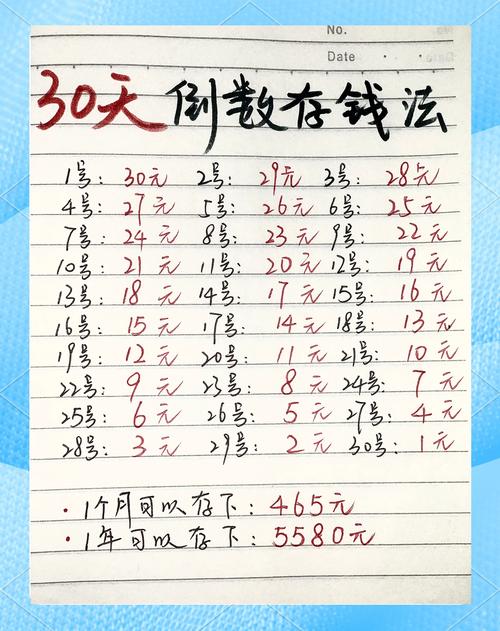 No.
Date
30天倒数存钱法
1号: 30元 2号: 29元 3号: 28元
4号: 27元 5号: 26元 6号: 25元
7号: 24元 8号: 23元 9号: 22元
10号: 21元 11号: 20元 12号: 19元
13号: 18元 14号: 17元 15号: 16元
16号: 15元 17号: 14元 18号: 13元
19号: 12元 20号: 11元 21号: 10元
22号: 9元 23号: 8元 24号: 7元
25号: 6元 26号: 5元 27号: 4元
28号: 3元 29号: 2元 30号: 1元
·1个月可以存下: 465元
·1年可以存下: 5580元